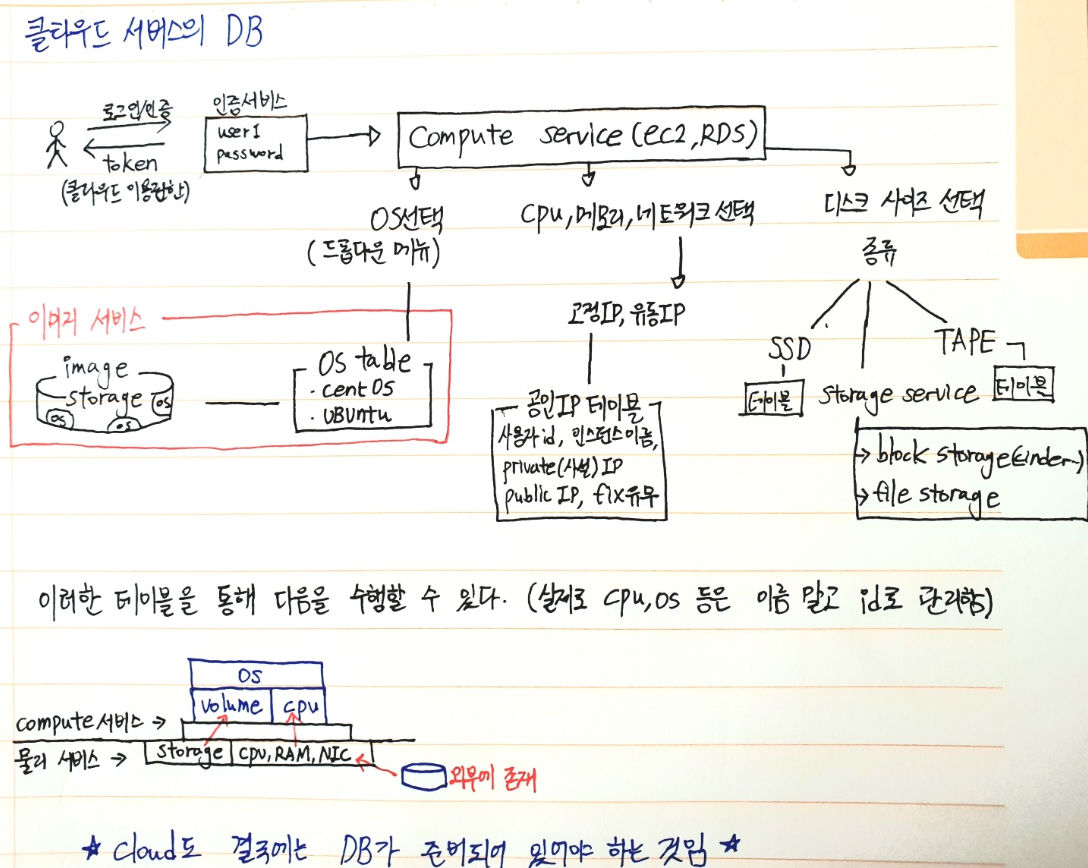 클라우드 서비스의 DB
로그인/인증
token
(클라우드 이용권한)
인증서비스
user1
password
Compute service(ec2,RDS)
OS선택
(드롭다운 메뉴)
cpu,메모리,네트워크 선택
디스크 사이즈 선택
종류
고정IP, 유동IP
이미지 서비스
image
storage
OS
OS
OS
OS table
· centOS
· UBUntu
공인IP 테이블
사용자id, 인스턴스이름,
private(사설)IP
public IP, fix유무
SSD
테이블
TAPE
테이블
storage service
→ block storage(cinder~)
→ file storage
이러한 테이블을 통해 다음을 수행할 수 있다. (실제로 cpu,os 등은 이름 말고 id로 관리함)
OS
volume
cpu
compute 서비스 →
물리 서비스 →
storage
cpu,RAM,NIC
외부에 존재
★ cloud도 결국에는 DB가 준비되어 있어야 하는 것임 ★